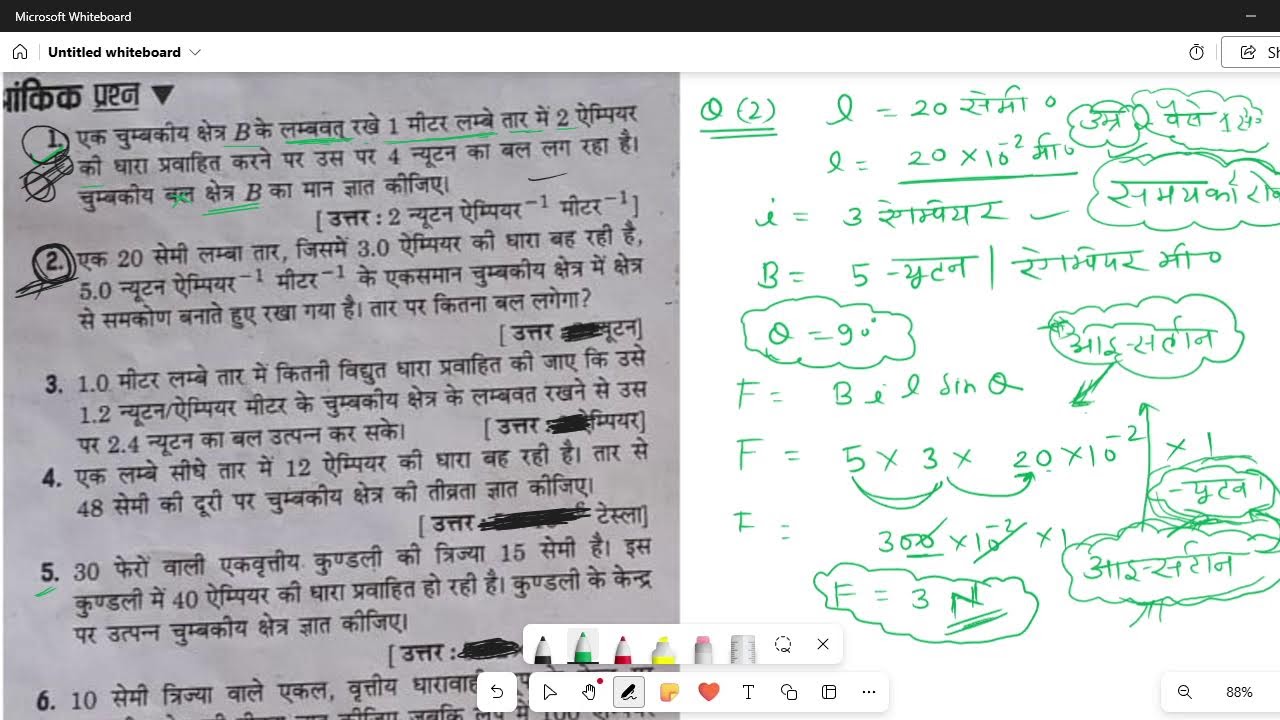 Microsoft Whiteboard
Untitled whiteboard
आंकिक प्रश्न ▼
1. एक चुम्बकीय क्षेत्र B के लम्बवत् रखे 1 मीटर लम्बे तार में 2 ऐम्पियर
की धारा प्रवाहित करने पर उस पर 4 न्यूटन का बल लग रहा है।
चुम्बकीय बल क्षेत्र B का मान ज्ञात कीजिए।
[उत्तर : 2 न्यूटन ऐम्पियर⁻¹ मीटर⁻¹]
2. एक 20 सेमी लम्बा तार, जिसमें 3.0 ऐम्पियर की धारा बह रही है,
5.0 न्यूटन ऐम्पियर⁻¹ मीटर⁻¹ के एकसमान चुम्बकीय क्षेत्र में क्षेत्र
से समकोण बनाते हुए रखा गया है। तार पर कितना बल लगेगा?
[उत्तर यूटन]
3. 1.0 मीटर लम्बे तार में कितनी विद्युत धारा प्रवाहित की जाए कि उसे
1.2 न्यूटन/ऐम्पियर मीटर के चुम्बकीय क्षेत्र के लम्बवत रखने से उस
पर 2.4 न्यूटन का बल उत्पन्न कर सके।
[उत्तर : म्पियर]
4. एक लम्बे सीधे तार में 12 ऐम्पियर की धारा बह रही है। तार से
48 सेमी की दूरी पर चुम्बकीय क्षेत्र की तीव्रता ज्ञात कीजिए।
[उत्तर : टेस्ला]
5. 30 फेरों वाली एकवृत्तीय कुण्डली की त्रिज्या 15 सेमी है। इस
कुण्डली में 40 ऐम्पियर की धारा प्रवाहित हो रही है। कुण्डली के केन्द्र
पर उत्पन्न चुम्बकीय क्षेत्र ज्ञात कीजिए।
[उत्तर :
6. 10 सेमी त्रिज्या वाले एकल, वृत्तीय धारावाही
Q (2) l = 20 सेमी०
l = 20 × 10⁻² मी०
i = 3 ऐम्पियर
B = 5 न्यूटन | ऐम्पियर मी०
θ = 90°
आइन्सटीन
F = B i l sin θ
F = 5 × 3 × 20 × 10⁻² × 1
न्यूटन
F = 300 × 10⁻² × 1
आइन्सटीन
F = 3 N
88%